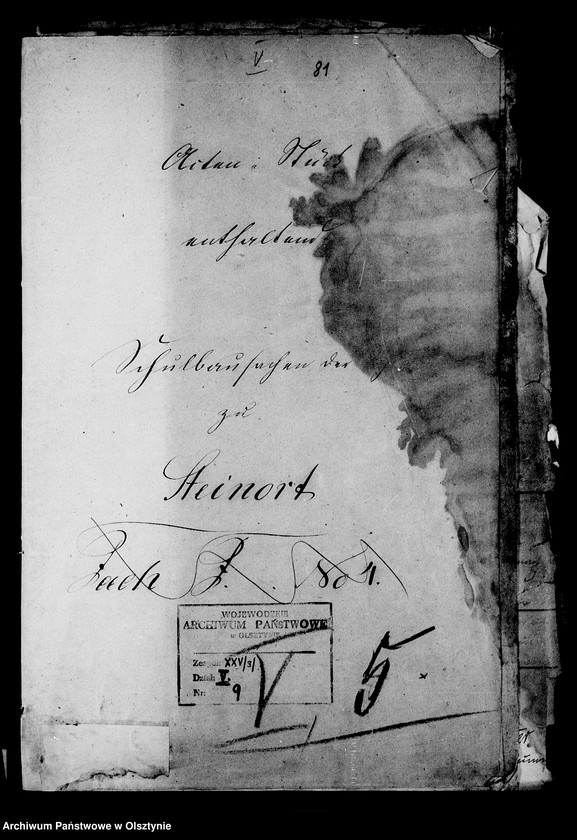 V
81
Acten-Stück
enthaltend
Schulbausachen der
zu
Steinort
Fach F. No 4.
WOJEWÓDZKIE
ARCHIWUM PAŃSTWOWE
w OLSZTYNIE
Zespół: XXV/3/
Dział: V.
Nr: 9
V 5
Archiwum Państwowe w Olsztynie